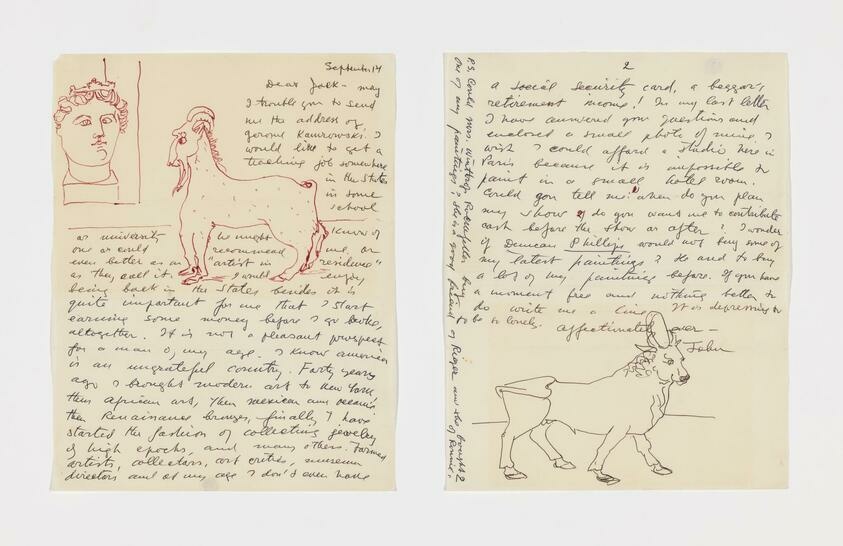 September 14
Dear Jack - may
I trouble you to send
me the address of
gerome Kamrowski. I
would like to get a
teaching job somewhere
in the States
in some
school
or university he might know of
one or could recommend me, or
even better as an "artist in residence"
as they call it. I would enjoy
being back in the States besides it is
quite important for me that I start
earning some money before I go broke,
altogether. It is not a pleasant prospect
for a man of my age. I know america
is an ungrateful country. Forty years
ago I brought modern art to New York
then african art, then mexican and oceanic
then Renaissance bronzes, finally I have
started the fashion of collecting jewelry
of high epochs, and many others. Formed
artists, collectors, art critics, museum
directors and at my age I don't even have
2
a social security card, a beggar's
retirement income! In my last letter
I have answered your questions and
enclosed a small photo of mine. I
wish I could afford a studio here in
Paris because it is impossible to
paint in a small hotel room.
Could you tell me when do you plan
my show & do you want me to contribute
cash before the show or after? I wonder
if Duncan Phillips would not buy some of
my latest paintings? He used to buy
a lot of my paintings before. If you have
a moment free and nothing better to
do write me a line. It is depressing to
be so lonely. affectionately ever -
John
P.S. Could Mrs. Winthrop Rockefeller buy
one of my paintings? She is a good friend of and she bought 2
of